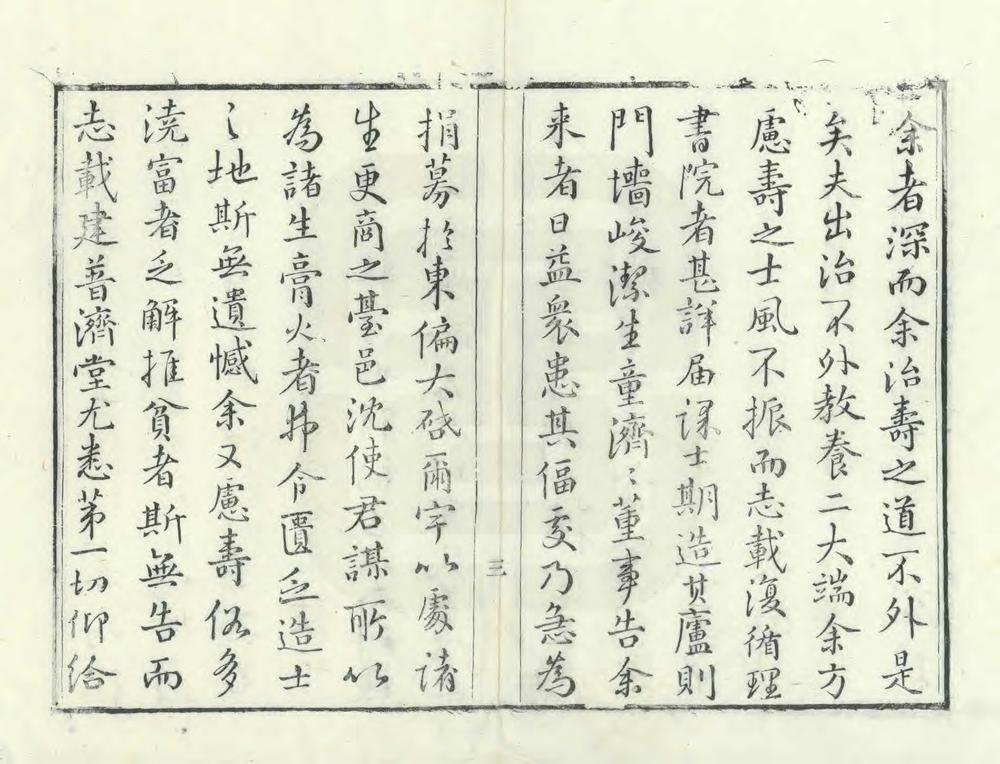 余者深而余治壽之道不外是
矣夫出治不外教養二大端余方
慮壽之士風不振而志載復循理
書院者甚詳届課士期造其廬則
門墻峻潔生童濟〻董事告余
来者日益衆患其偪交乃急為
三
捐募於東偏大啟爾宇以處諸
生更商之臺邑沈使君謀所以
為諸生膏火者弗令匱乏造士
之地斯無遺憾余又慮壽俗多
澆富者乏解推貧者斯無告而
志載建普濟堂尤悉第一切仰給